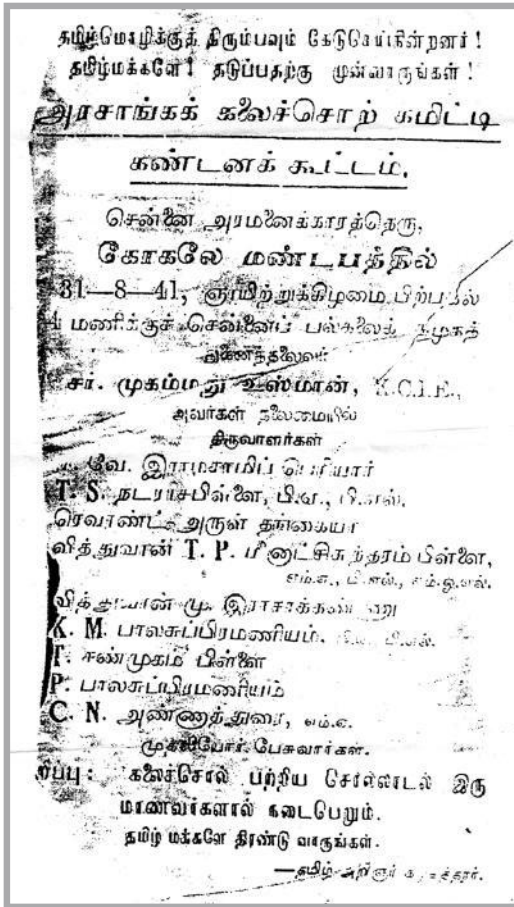 தமிழ்மொழிக்குத் திரும்பவும் கேடுசெய்கின்றனர்!
தமிழ்மக்களே! தடுப்பதற்கு முன்வாருங்கள்!
அரசாங்கக் கலைச்சொற் கமிட்டி
கண்டனக் கூட்டம்.
சென்னை அரமனைக்காரத்தெரு,
கோகலே மண்டபத்தில்
31—8—41, ஞாயிற்றுக்கிழமை பிற்பகல்
4 மணிக்குச் சென்னைப் பல்கலைக் கழகத்
துணைத்தலைவர்
சா. முகம்மது உஸ்மான், K.C.I.E.,
அவர்கள் தலைமையில்
திருவாளர்கள்
வே. இராமசாமிப் பெரியார்
T. S. நடராசபிள்ளை, பி.ஏ., பி.எல்.
ரெவரண்ட் அருள் தங்கையா
வித்துவான் T. P. மீனாட்சிசுந்தரம் பிள்ளை,
எம்.ஏ., பி.எல்., எம்.ஓ.எல்.
வித்துவான் மு. இராசாக்கண்ணு
K. M. பாலசுப்பிரமணியம், பி.ஏ., பி.எல்.
T. சண்முகம் பிள்ளை
P. பாலசுப்பிரமணியம்
C. N. அண்ணாத்துரை, எம்.ஏ.
முதலியோர் பேசுவார்கள்.
கலைச்சொல் பற்றிய சொல்லாடல் இரு
மாணவர்களால் நடைபெறும்.
தமிழ் மக்களே திரண்டு வாருங்கள்.
—தமிழ் அறிஞர் கழகத்தார்.